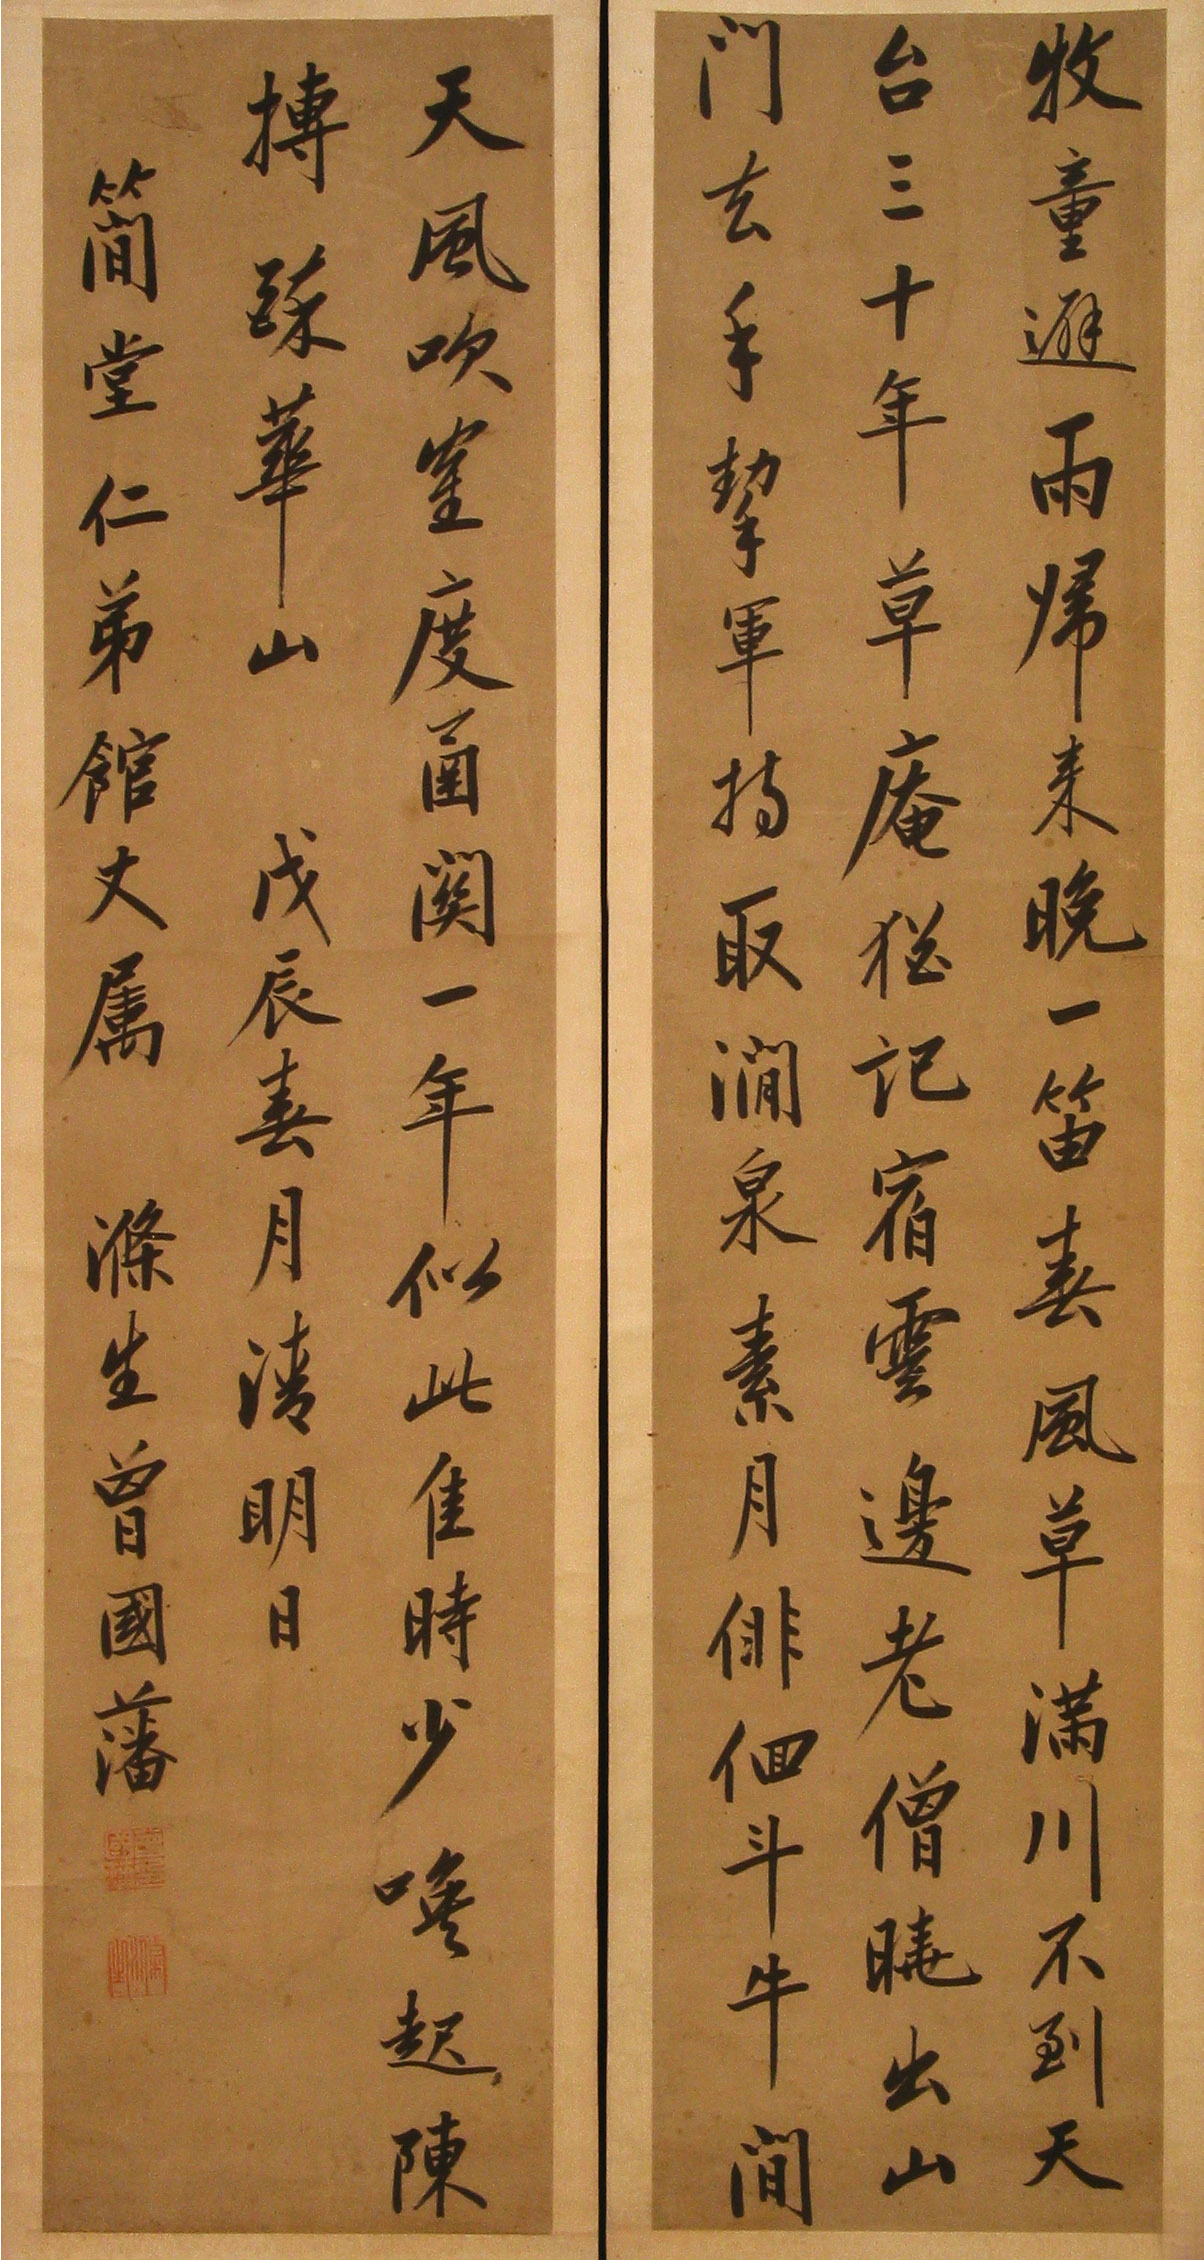 牧童避雨歸来晚一笛春風草满川不到天
台三十年草庵猶記宿雲邊老僧曉出山
门去手挈軍持取澗泉素月俳佪斗牛間
天風吹隺度函関一年似此佳時少喚起陳
摶醉華山 戊辰春月清明日
簡堂仁弟館丈属 滌生曾國藩